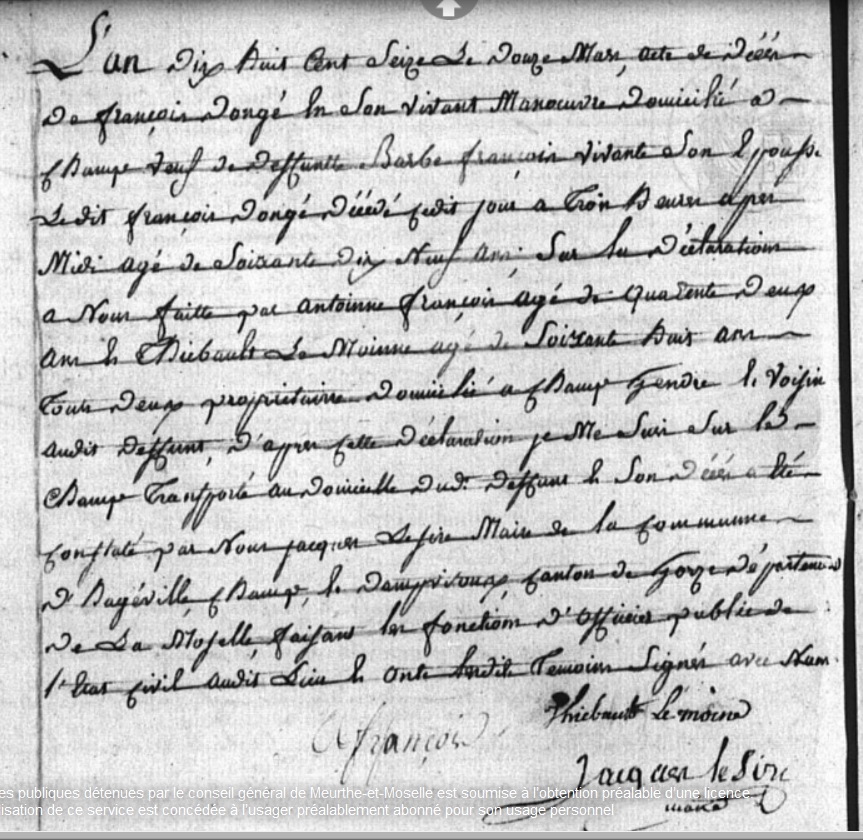 L'an dix huit cent seize Le douze Mars, acte de décés
De françois dongé En Son vivant Manoeuvre domicilié a
Champs veuf de deffunte Barbe françois vivante Son Epouse
Ledit françois dongé décédé cedit jour a Trois heures aprés
Midi agé de Soixante dix Neuf ans Sur la déclaration
a Nous faitte par antoinne françois agé de quarente deux
ans & Thiebault Le Moinne agé de Soixante huit ans
Tous deux proprietaire domicilié a Champs Gendre & Voisin
audit deffunt, d'apres cette déclaration je Me Suis Sur le
Champs Transporté au domicille dud. deffunt & Son décés a été
Constaté par Nous jacques Lesire Maire de la Communne
D'Bagéville Champs, & dampvitoux Canton de Gorze département
De La Moselle faisant les fonctions d'officier public de
l'état civil audit Lieu & onts lesdits Temoins Signés avec Nous
Thiebault Lemoine
A françois
Jacques leSire
maire
es publiques détenues par le conseil général de Meurthe-et-Moselle est soumise à l'obtention préalable d'une licence.
isation de ce service est concédée à l'usager préalablement abonné pour son usage personnel